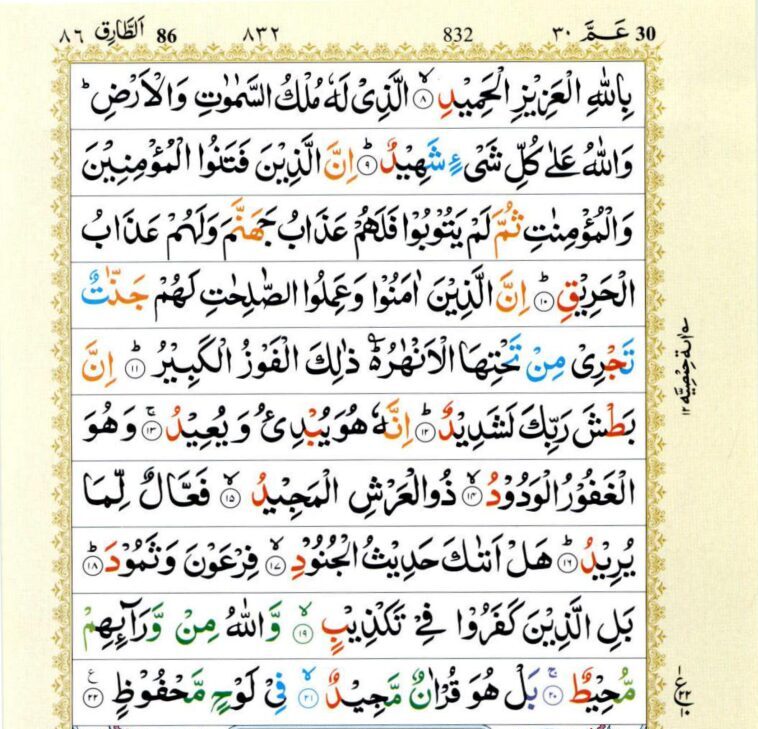 30 عَمَّ ٣٠ 832 ٨٣٢ 86 اَلطَّارِق ٨٦
بِاللّٰهِ الْعَزِيْزِ الْحَمِيْدِ ۙ‏ ﴿۸﴾ الَّذِىْ لَهٗ مُلْكُ السَّمٰوٰتِ وَالْاَرْضِ ؕ
وَاللّٰهُ عَلٰى كُلِّ شَىْءٍ شَهِيْدٌ ؕ ﴿۹﴾ اِنَّ الَّذِيْنَ فَتَنُوا الْمُؤْمِنِيْنَ
وَالْمُؤْمِنٰتِ ثُمَّ لَمْ يَتُوْبُوْا فَلَهُمْ عَذَابُ جَهَنَّمَ وَلَهُمْ عَذَابُ
الْحَرِيْقِ ؕ ﴿۱۰﴾ اِنَّ الَّذِيْنَ اٰمَنُوْا وَعَمِلُوا الصّٰلِحٰتِ لَهُمْ جَنّٰتٌ
تَجْرِىْ مِنْ تَحْتِهَا الْاَنْهٰرُ ؕ ؔ ذٰلِكَ الْفَوْزُ الْكَبِيْرُ ؕ ﴿۱۱﴾ اِنَّ
بَطْشَ رَبِّكَ لَشَدِيْدٌ ؕ ﴿۱۲﴾ اِنَّهٗ هُوَ يُبْدِئُ وَيُعِيْدُ ۚ ﴿۱۳﴾ وَهُوَ
الْغَفُوْرُ الْوَدُوْدُ ۙ ﴿۱۴﴾ ذُو الْعَرْشِ الْمَجِيْدُ ۙ ﴿۱۵﴾ فَعَّالٌ لِّمَا
يُرِيْدُ ؕ ﴿۱۶﴾ هَلْ اَتٰٮكَ حَدِيْثُ الْجُنُوْدِ ۙ ﴿۱۷﴾ فِرْعَوْنَ وَثَمُوْدَ ؕ ﴿۱۸﴾
بَلِ الَّذِيْنَ كَفَرُوْا فِىْ تَكْذِيْبٍ ۙ ﴿۱۹﴾ وَّاللّٰهُ مِنْ وَّرَآئِهِمْ
مُّحِيْطٌ ۚ ﴿۲۰﴾ بَلْ هُوَ قُرْاٰنٌ مَّجِيْدٌ ۙ ﴿۲۱﴾ فِىْ لَوْحٍ مَّحْفُوْظٍ ﴿۲۲﴾ ع